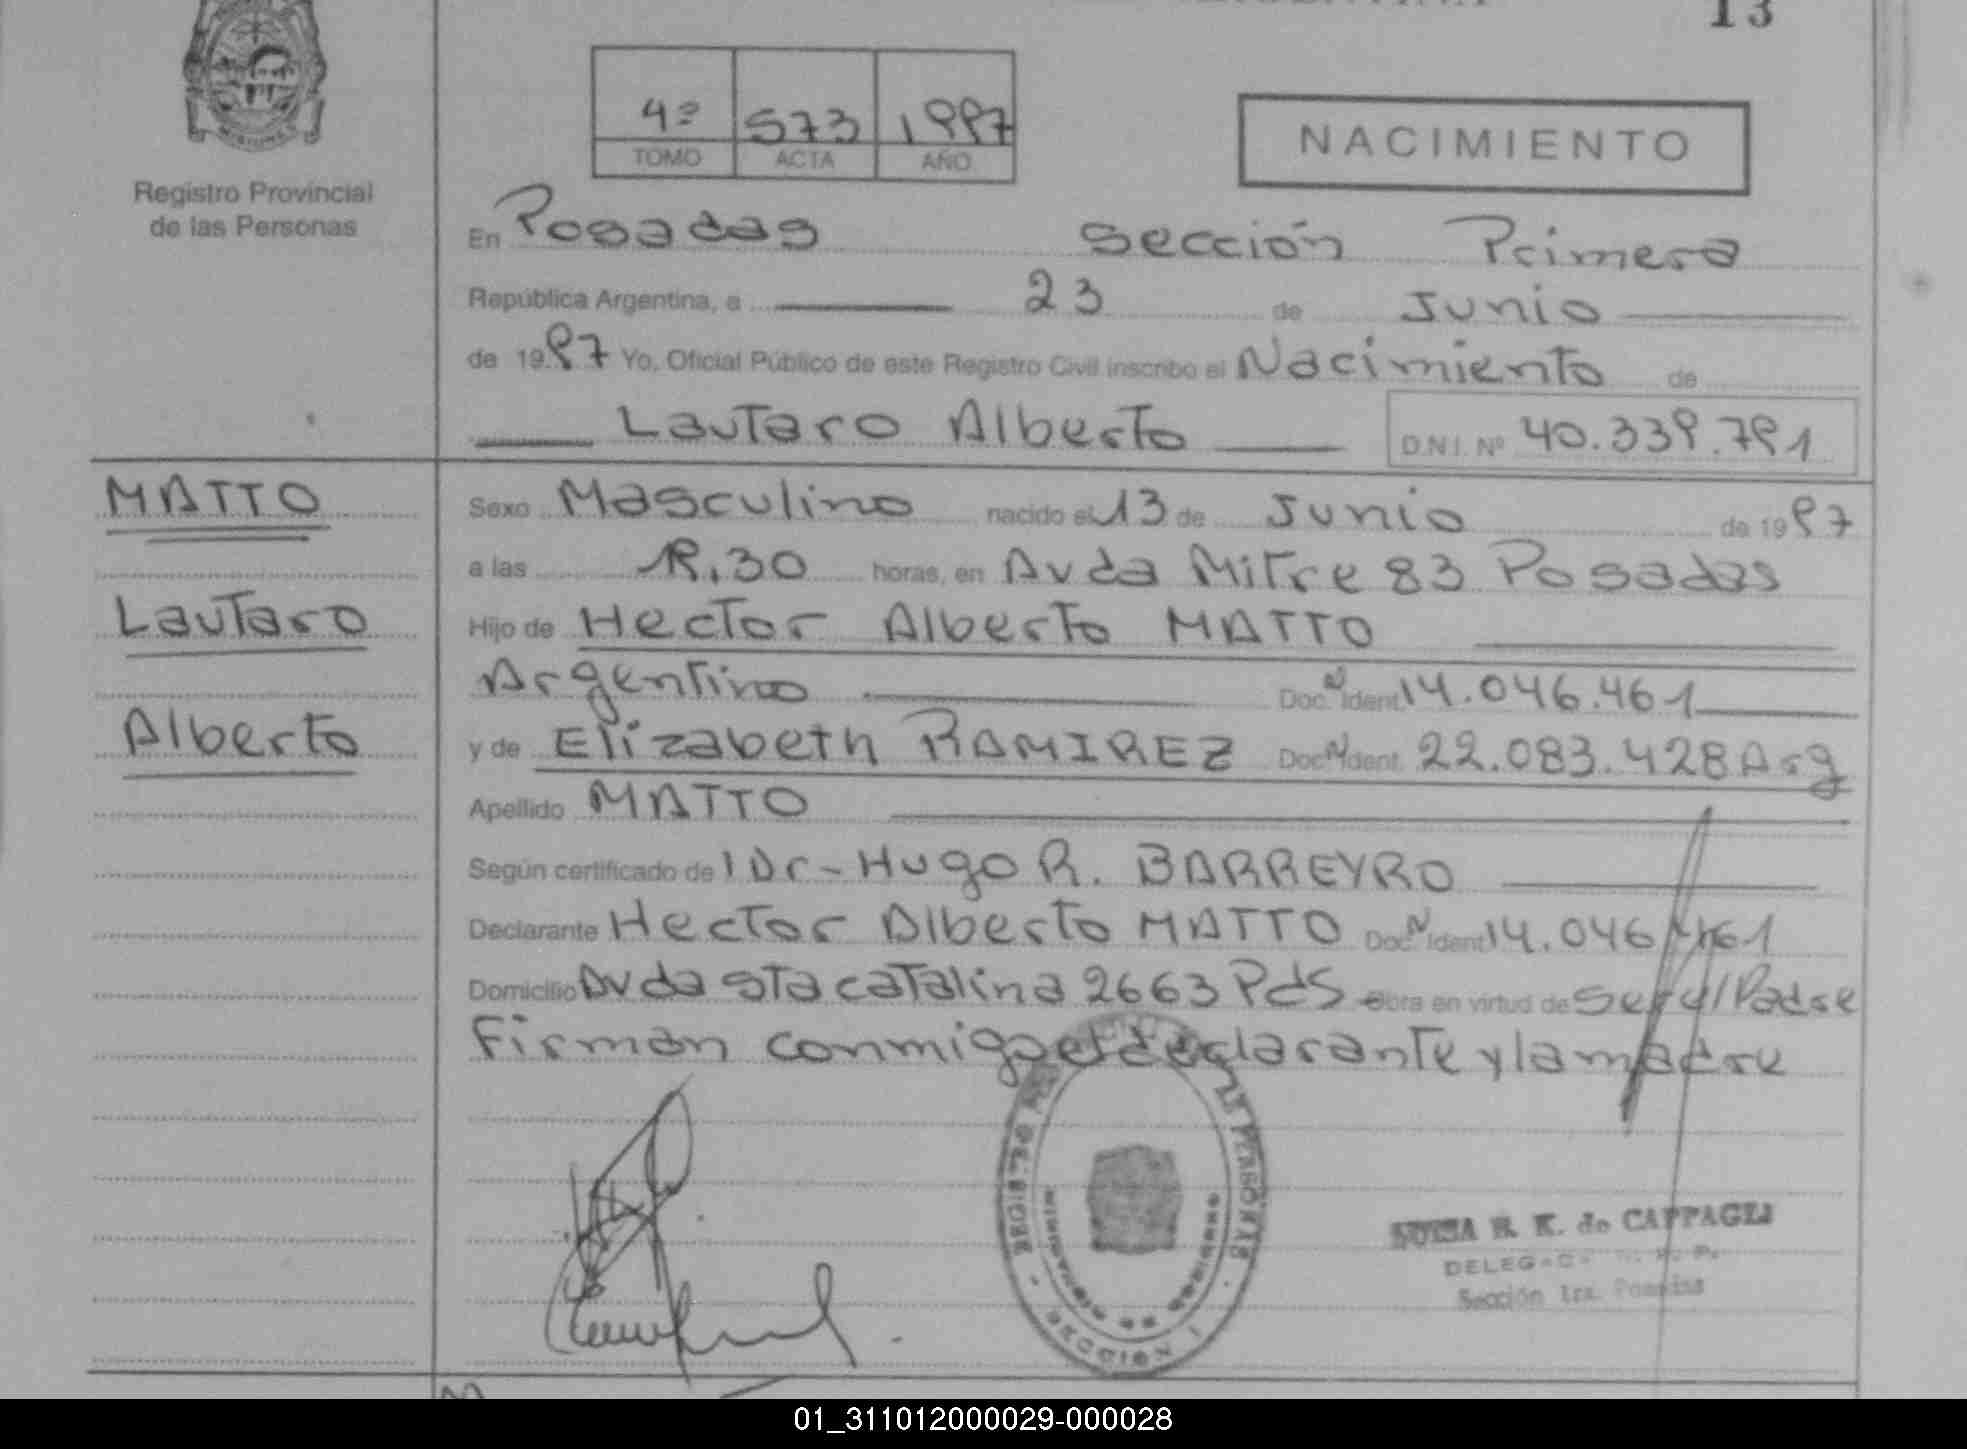 13
4º 573 1997
TOMO ACTA AÑO
NACIMIENTO
MISIONES
Registro Provincial
de las Personas
En Posadas Sección Primera
República Argentina, a 23 de Junio
de 1997 Yo, Oficial Público de este Registro Civil inscribo el Nacimiento de
Lautaro Alberto D.N.I. Nº 40.339.791
MATTO
Lautaro
Alberto
Sexo Masculino nacido el 13 de Junio de 1997
a las horas, en Avda Mitre 83 Posadas
Hijo de Hector Alberto MATTO
Argentino Doc. N Ident. 14.046.461
y de Elizabeth RAMIREZ Doc. N Ident. 22.083.428 Arg
Apellido MATTO
Según certificado de l Dr- Hugo R. BARREYRO
Declarante Hector Alberto MATTO Doc. N Ident. 14.046.461
Domicilio Avda Sta Catalina 2663 Pds Obra en virtud de ser el Padre
Firman conmigo el declarante y la madre
REGISTRO PERSONAS
SECCION I
R. K. de CAPPAGLI
Sección 1ra. Posadas
01_311012000029-000028